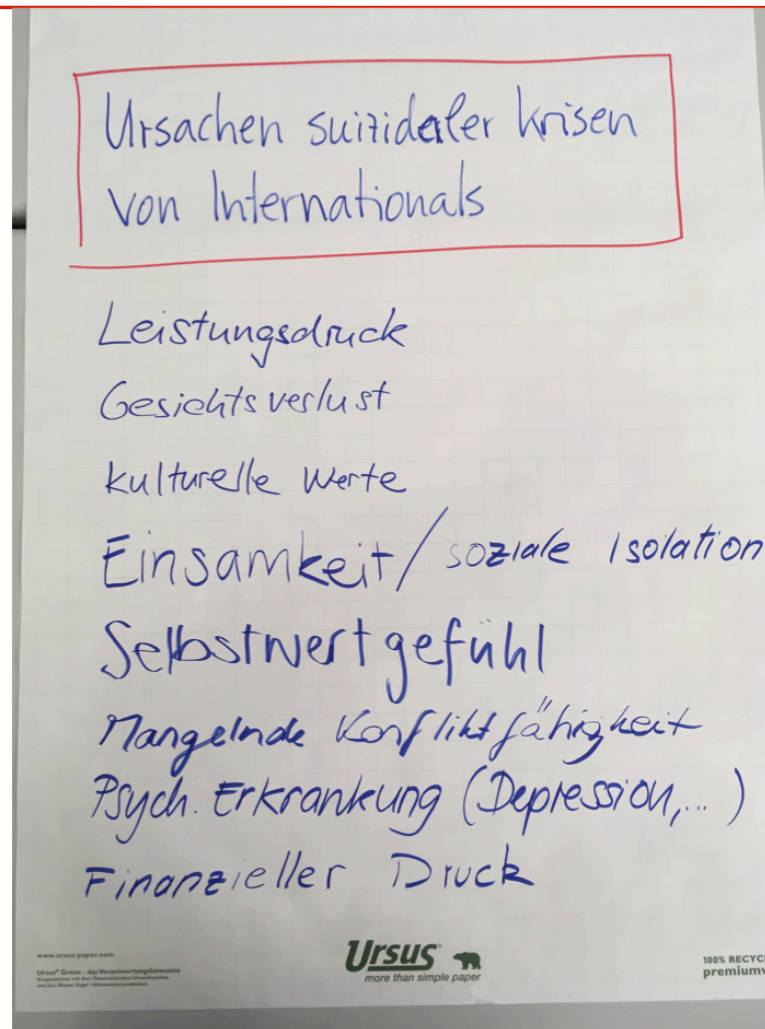 Ursachen suizidaler Krisen
von Internationals
Leistungsdruck
Gesichtsverlust
kulturelle Werte
Einsamkeit / soziale Isolation
Selbstwertgefühl
Mangelnde Konfliktfähigkeit
Psych. Erkrankung (Depression,...)
Finanzieller Druck
www.ursus-paper.com
Ursus® Green - das Verantwortungsbewusste
Ursus
more than simple paper
100% RECYC
premiumw